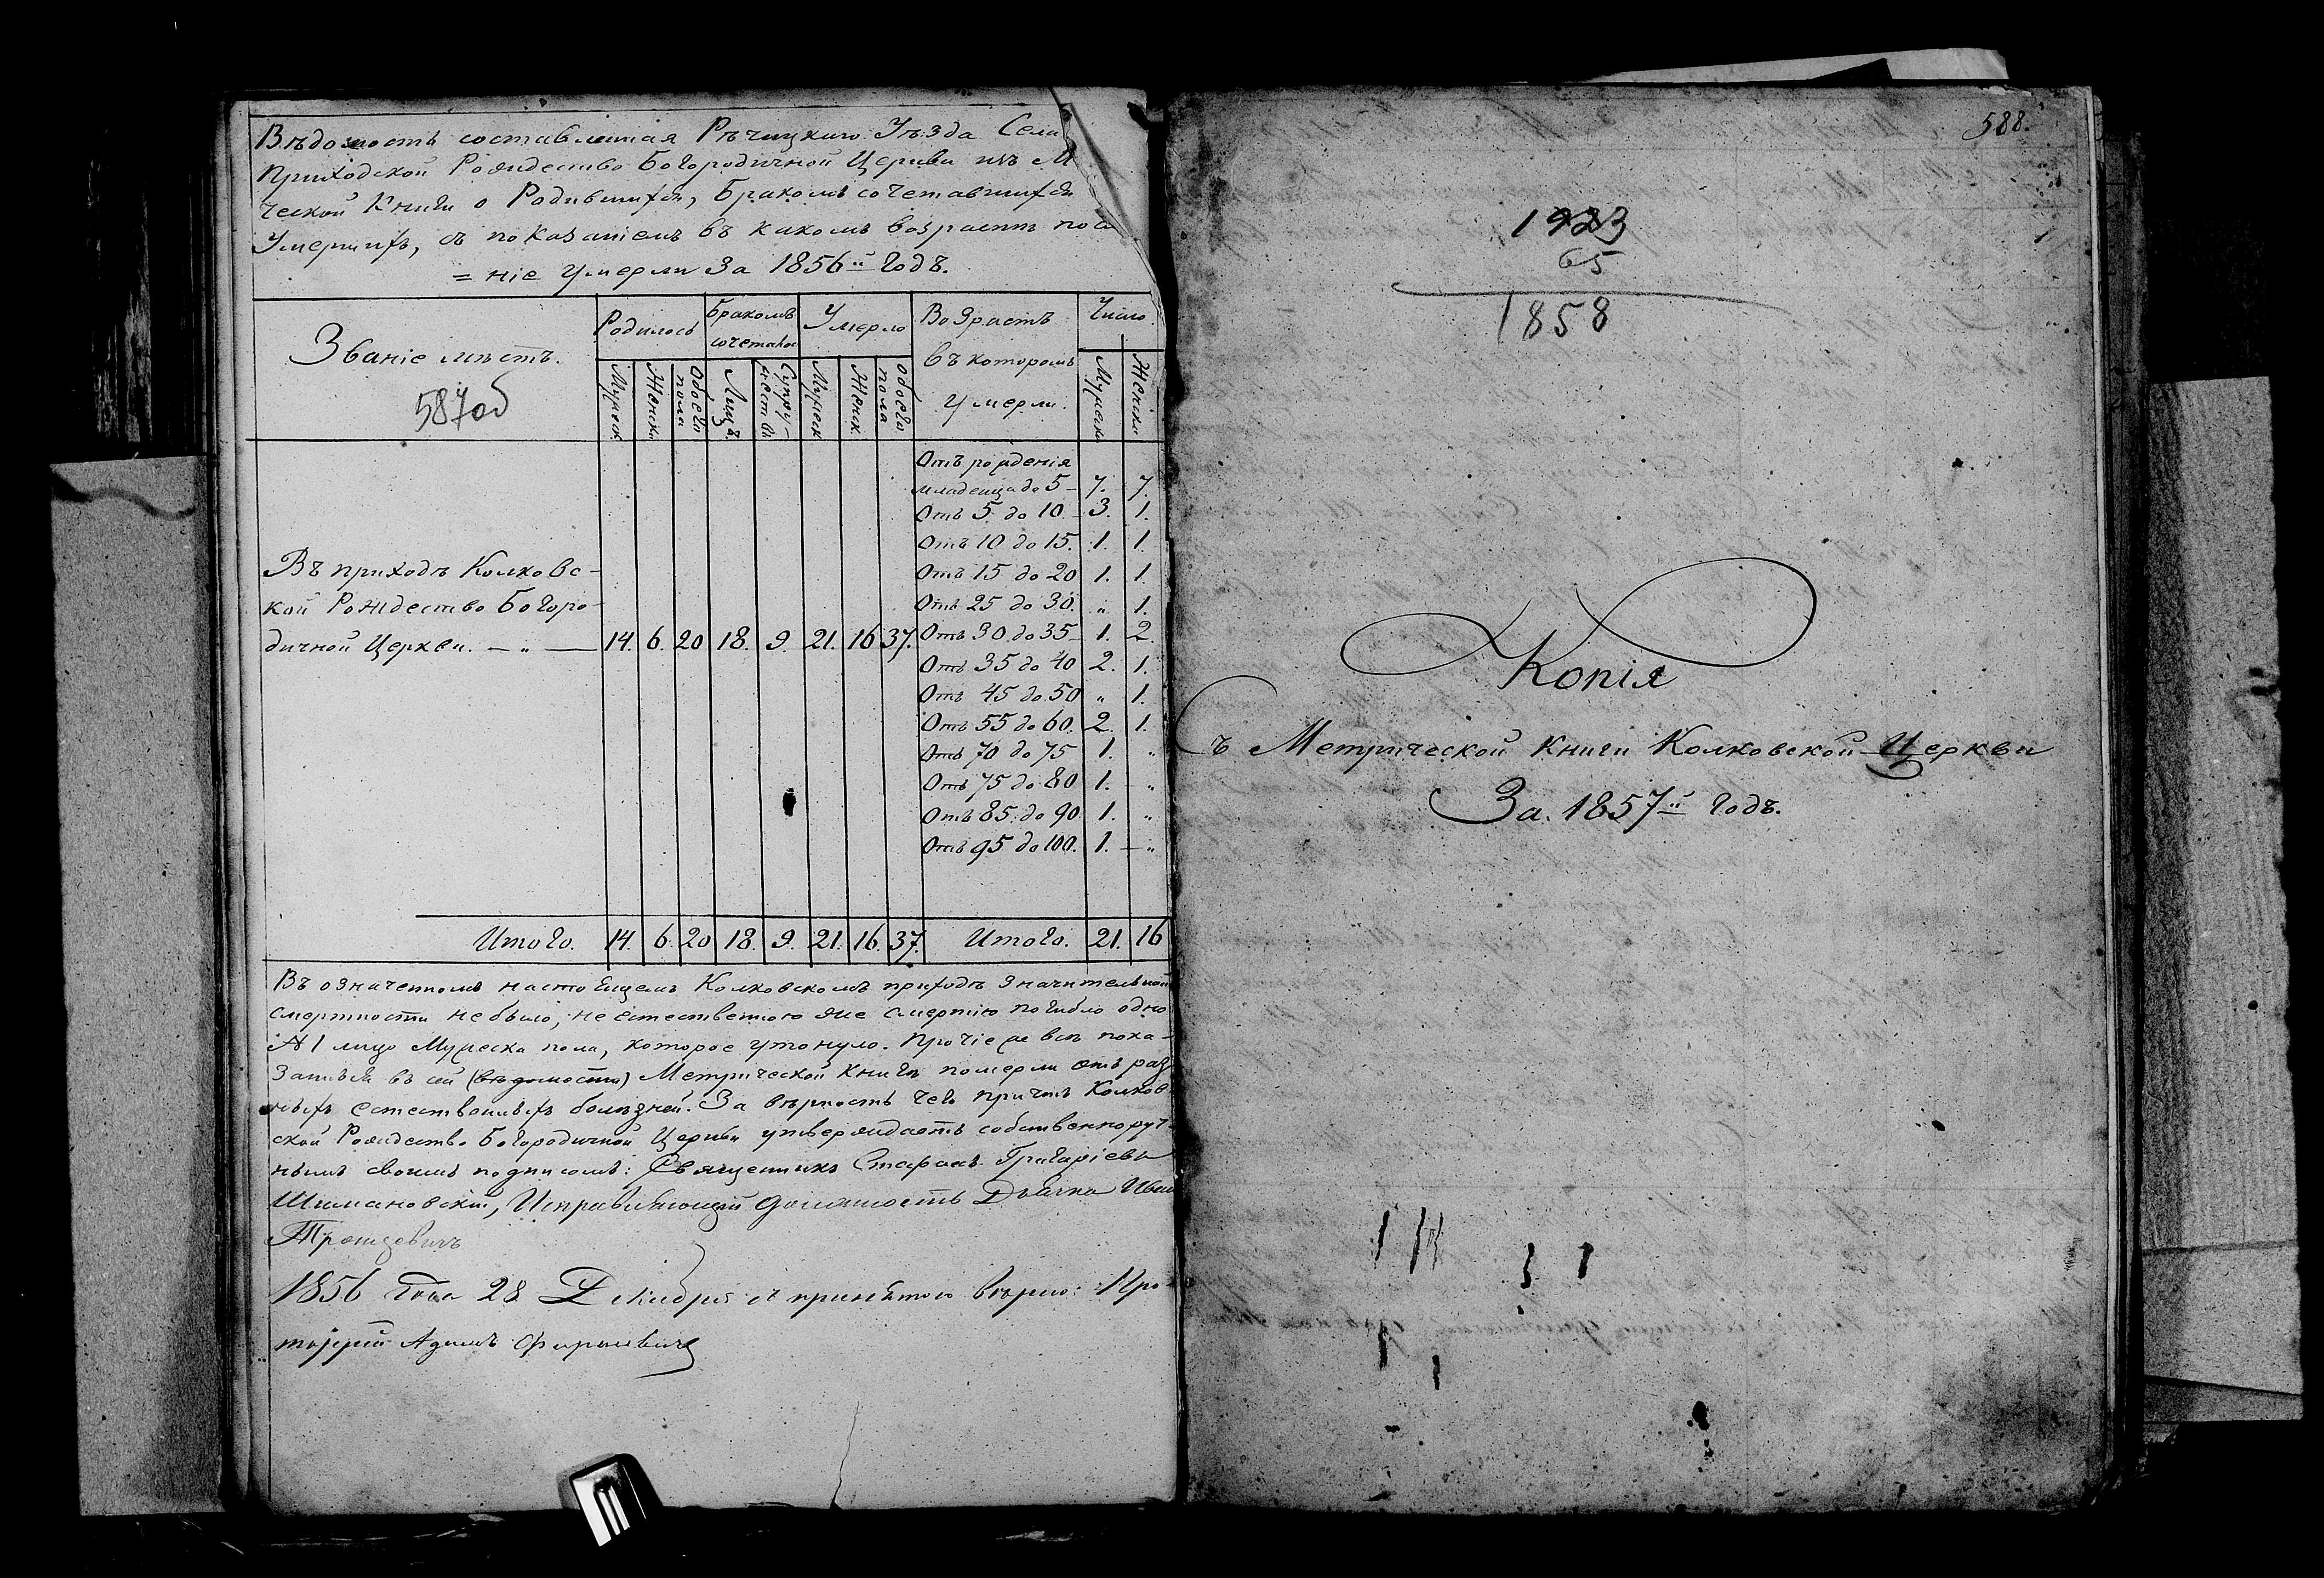 Вѣдомость составленная Рѣчицкаго Уѣзда Села
Приходской Рождество Богородичной Церкви изъ М
ческой Книги о Родившихся, Бракомъ сочетавшихся
Умершихъ, съ показаніемъ въ какомъ возрастѣ по
= ніе умерли За 1856й Годъ.
Званіе мѣстъ.
587об
Родилось
Бракомъ сочеталось
Умерло
Возрастъ въ которомъ умерли.
Число
Мужеск
Женск.
Обоего пола
Лицъ
Супружествъ
Мужеск
Женск.
обоего пола
Мужеска
Женска
Отъ рожденія
младенца до 5 – 7. 7.
Отъ 5 до 10 3. 1.
Отъ 10 до 15. 1. 1.
Отъ 15 до 20 1. 1.
Отъ 25 до 30. „ 1.
Отъ 30 до 35 – 1. 2.
Отъ 35 до 40 2. 1.
Отъ 45 до 50 „ 1.
Отъ 55 до 60. 2. 1.
Отъ 70 до 75 1. „
Отъ 75 до 80 1. „
Отъ 85 до 90 1. „
Отъ 95 до 100. 1. – „
Въ приходѣ Колковс-
кой Рождество Богоро-
дичной Церкви. — „ — 14. 6. 20 18. 9. 21. 16 37.
Итого. 14. 6. 20 18. 9. 21. 16. 37. Итого. 21. 16
Въ означенномъ настоящемъ Колковскомъ приходѣ значительной
смертности не было, не естественною же смертію погибло одно
1 лицо Мужеска пола, которое утонуло. Прочіе же всѣ пока-
занные въ сей (вѣдомости) Метрической Книгѣ померли отъ раз
ныхъ естественныхъ болѣзней. За вѣрность чего причтъ Колков
ской Рождество Богородичной Церкви утверждаетъ собственноруч
нымъ своимъ подписомъ: Священникъ Стефанъ Григоріевъ
Шимановскій, Исправляющій должность Дьячка Иван
Троицевичъ
1856 Года 28 Декабря съ принятою вѣрно: Про
тоіерей Адамъ
588.
1923
65
1858
Копія
съ Метрической Книги Колковской Церкви
За 1857й Годъ.